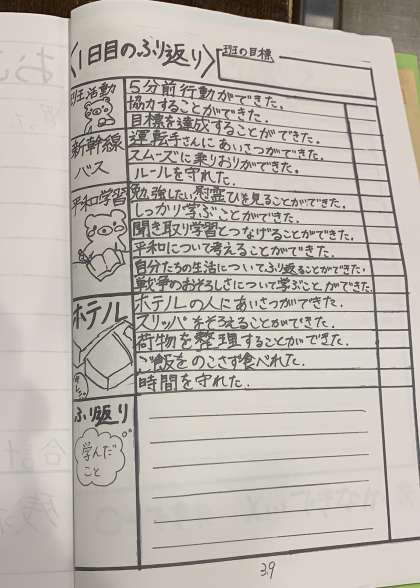 〈1日目のふり返り〉
班の目標
班活動
5分前行動ができた。
協力することができた。
目標を達成することができた。
新幹線
バス
運転手さんにあいさつができた。
スムーズに乗りおりができた。
ルールを守れた。
平和学習
勉強したい慰霊ひを見ることができた。
しっかり学ぶことができた。
聞き取り学習とつなげることができた。
平和について考えることができた。
自分たちの生活についてふり返ることができた.
戦争のおそろしさについて学ぶことができた.
ホテル
ホテルの人にあいさつができた.
スリッパをそろえることができた.
荷物を整理することができた.
ご飯をのこさず食べれた.
時間を守れた.
ふり返り
学んだ
こと
39